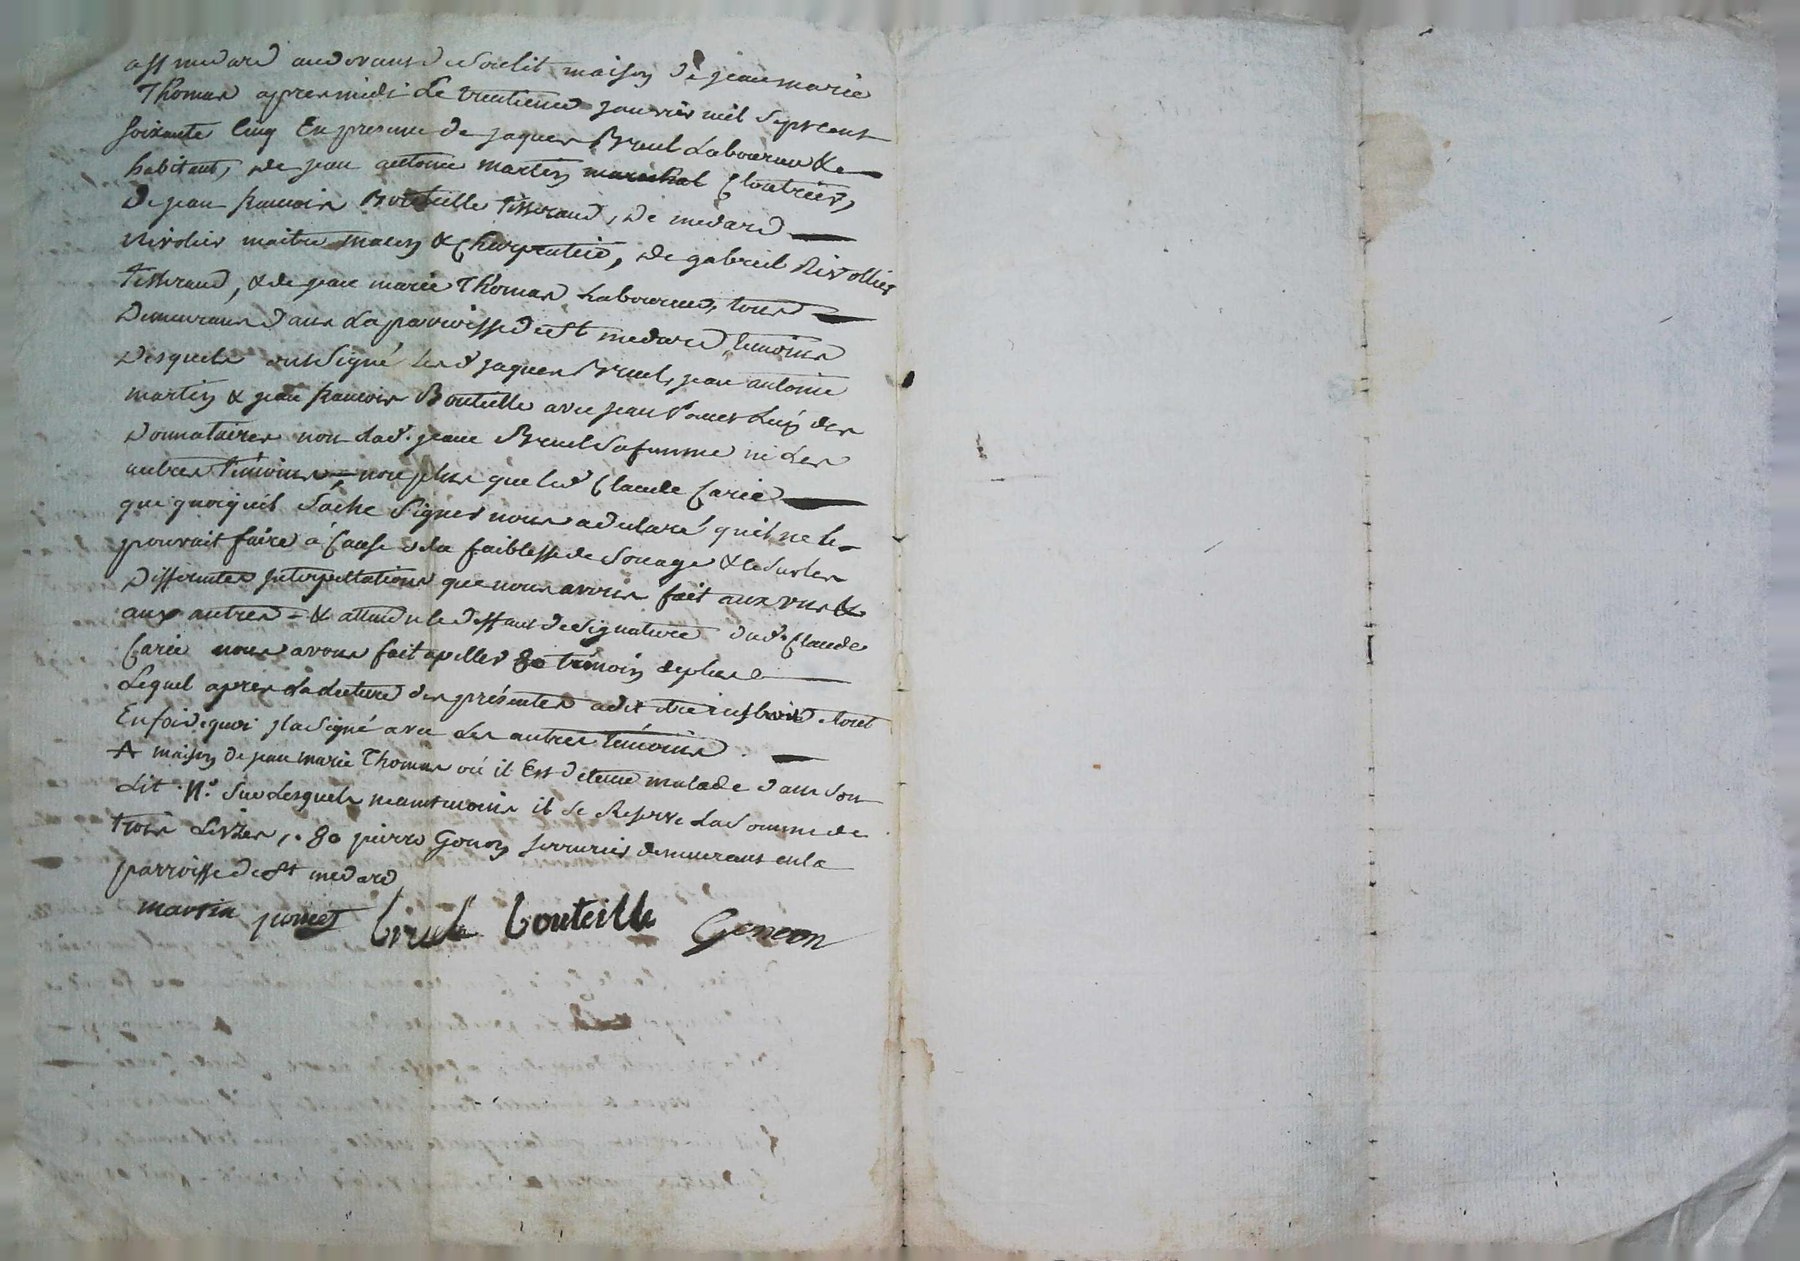 a st medard au devant de son lit maison de jean marie
Thomas apres midi Le trentieme janvier mil sept cent
soixante cinq En presence de jaques Bruel Laboureur &
habitant, de jean antoine martin marechal Cloutrier,
De jean francois Bouteille tisserand, De medard
Rivolier maitre macon & Charpentier, de gabriel Rivollier
tisserand, & de jean marie Thomas Laboureur, tous
Demeurans dans La parroisse de st medard, temoins
desquels ont signé led jaques Bruel, jean antoine
martin & jean francois Bouteille avec jean Poncet Lun des
Donnataires non lad. jeane Bruel sa femme ni Les
autres temoins = non plus que led Claude Carie
que quoiquil sache signer nous a declaré quil ne le
pouvait faire à Cause de la faiblesse de son age & ce sur les
Differentes jnterpellations que nous avons fait aux uns &
aux autres = & attendu le deffaut de signature dud. Claude
Carie nous avons fait apeller go temoin de plus
Lequel apres La Lecture des présentes a dit etre instruit du tout
En foi de quoi jl a signé avec Les autres temoins.
A maison de jean marie Thomas où il Est detenu malade dans son
Lit. N.º sur Lesquels neantmoins il se Reserve La somme de
trois Livres, . go pierre Gonon serrurier demeurant en la
parroisse de st medard
martin poncet bruel bouteille Gonon